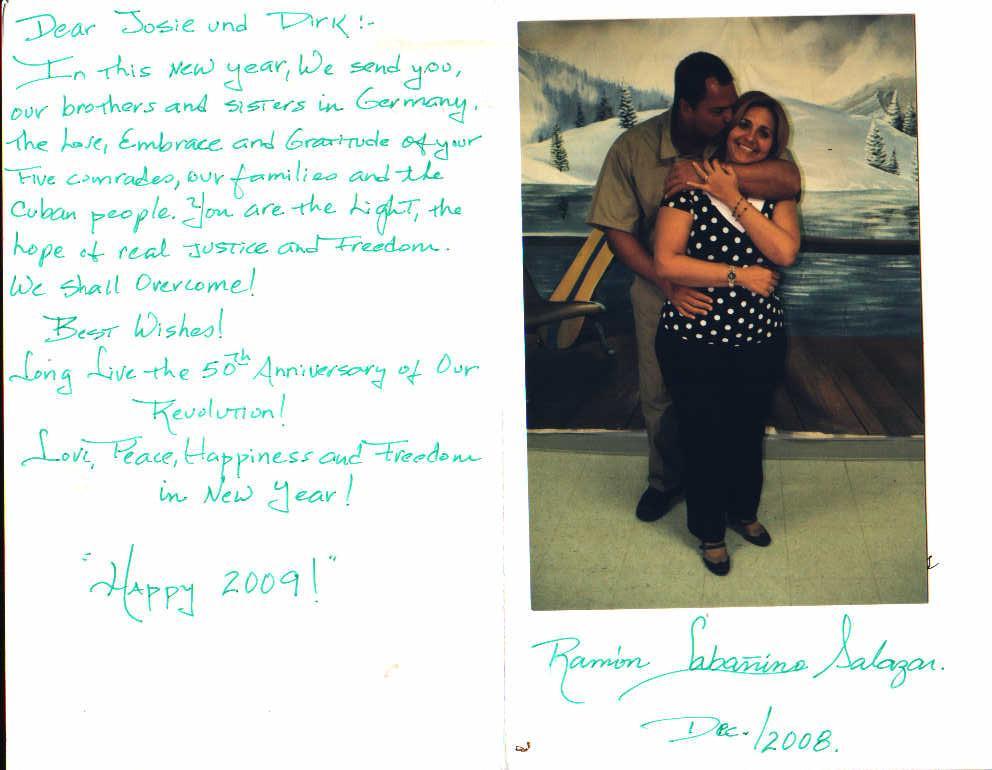 Dear Josie und Dirk!-
In this New year, We send you,
our brothers and sisters in Germany,
the Love, Embrace and Gratitude of your
Five comrades, our families and the
Cuban people. You are the Light, the
hope of real Justice and Freedom.
We Shall Overcome!
Best Wishes!
Long Live the 50th Anniversary of Our
Revolution!
Love, Peace, Happiness and Freedom
in New Year!
"Happy 2009!"
Ramón Labañino Salazar.
Dec./2008.